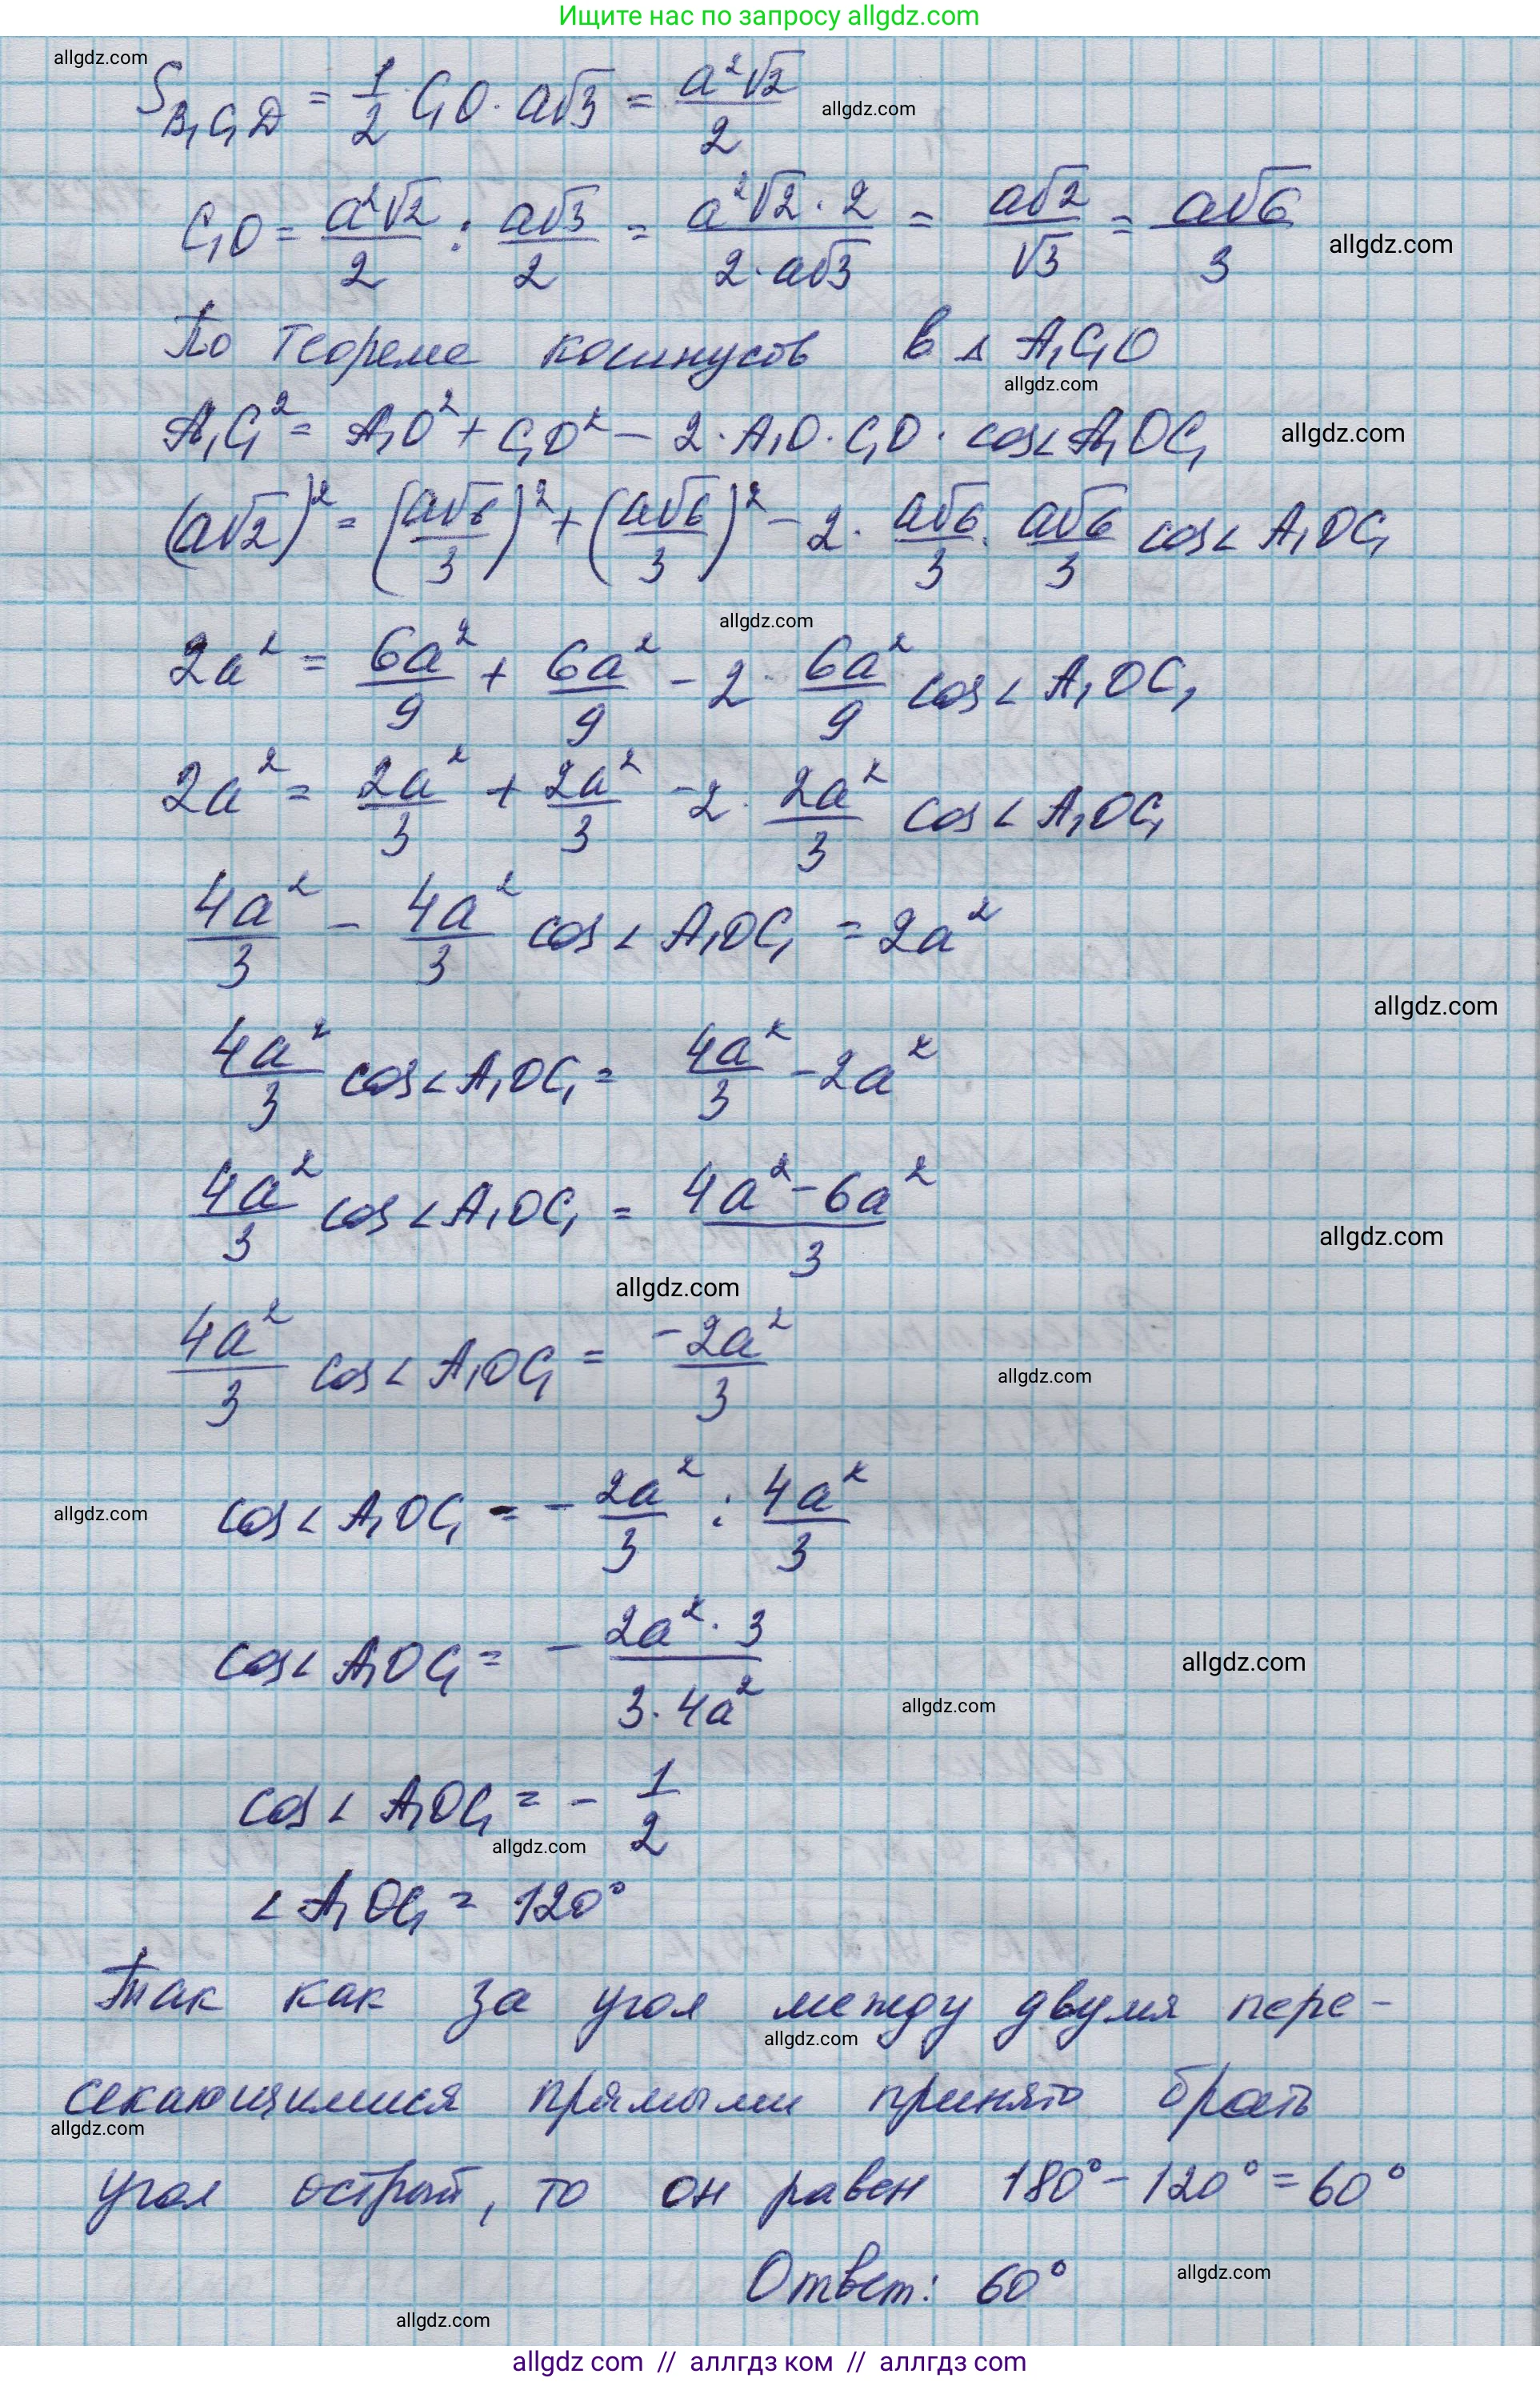 Ищите нас по запросу allgdz.com
allgdz.com
S_{B₁C₁D} = 1/2 C₁O · a√3 = a²√2/2 allgdz.com
C₁O = a²√2/2 : a√3/2 = a²√2 · 2/2 · a√3 = a√2/√3 = a√6/3 allgdz.com
По теореме косинусов в △ A₁C₁O
allgdz.com
A₁C₁² = A₁O² + C₁O² − 2 · A₁O · C₁O · cos∠A₁OC₁ allgdz.com
(a√2)² = (a√6/3)² + (a√6/3)² − 2 · a√6/3 · a√6/3 cos∠A₁OC₁
allgdz.com
2a² = 6a²/9 + 6a²/9 − 2 · 6a²/9 cos∠A₁OC₁
2a² = 2a²/3 + 2a²/3 − 2 · 2a²/3 cos∠A₁OC₁
4a²/3 − 4a²/3 cos∠A₁OC₁ = 2a²
allgdz.com
4a²/3 cos∠A₁OC₁ = 4a²/3 − 2a²
4a²/3 cos∠A₁OC₁ = 4a² − 6a²/3 allgdz.com
allgdz.com
4a²/3 cos∠A₁OC₁ = −2a²/3 allgdz.com
allgdz.com cos∠A₁OC₁ = − 2a²/3 : 4a²/3
cos∠A₁OC₁ = − 2a² · 3/3 · 4a² allgdz.com
allgdz.com
cos∠A₁OC₁ = − 1/2
allgdz.com
∠A₁OC₁ = 120°
Так как за угол между двумя пере-
allgdz.com
секающимися прямыми принято брать
allgdz.com
угол острый, то он равен 180° − 120° = 60°
Ответ: 60° allgdz.com
allgdz.com
allgdz com // аллгдз ком // аллгдз com